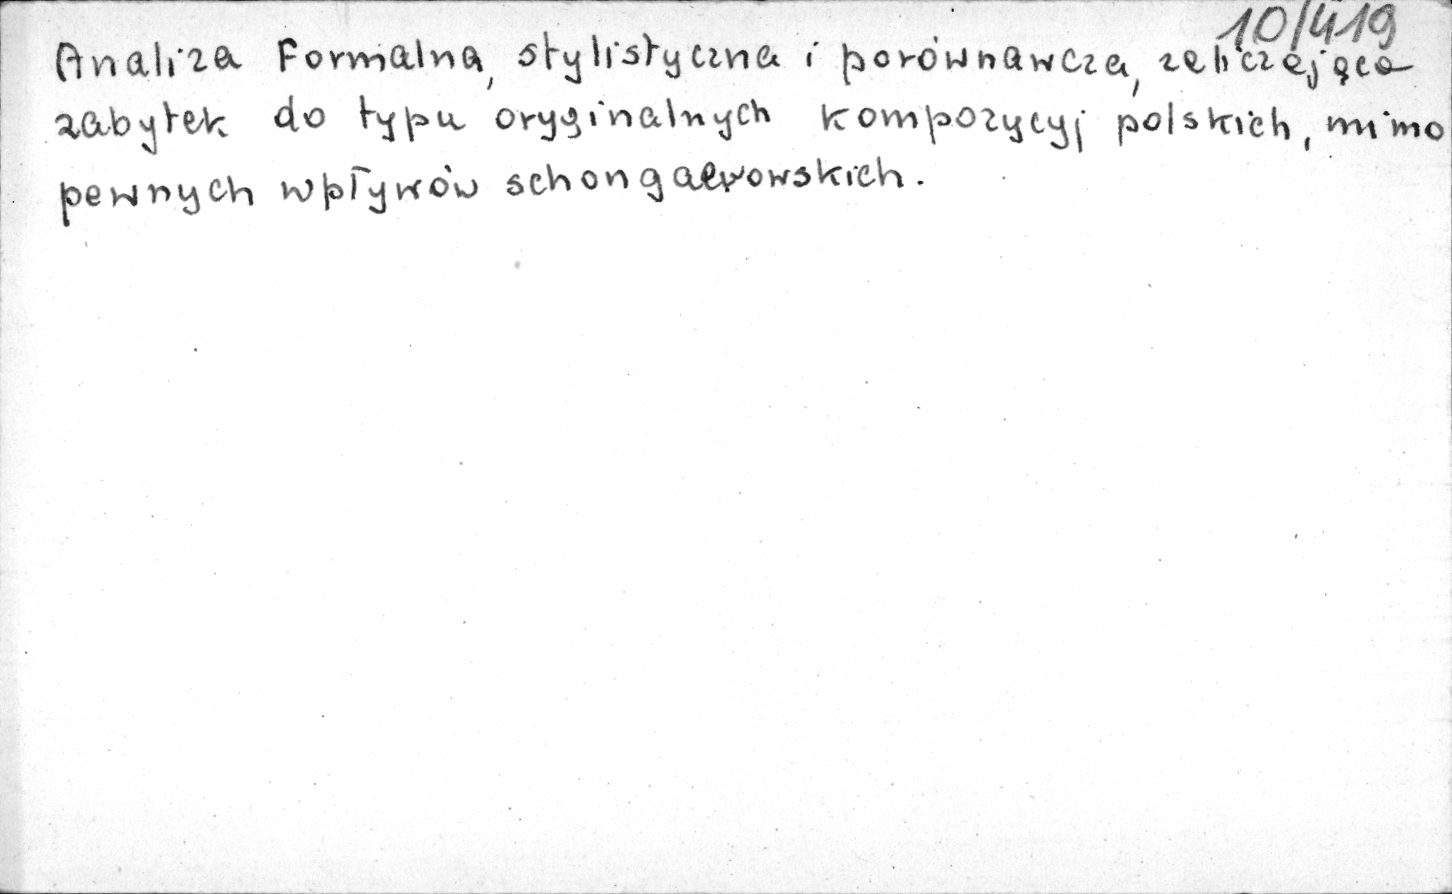 10/419
Analiza Formalna, stylistyczna i porównawcza, zaliczająca
zabytek do typu oryginalnych kompozycyj polskich, mimo
pewnych wpływów schongauerowskich.